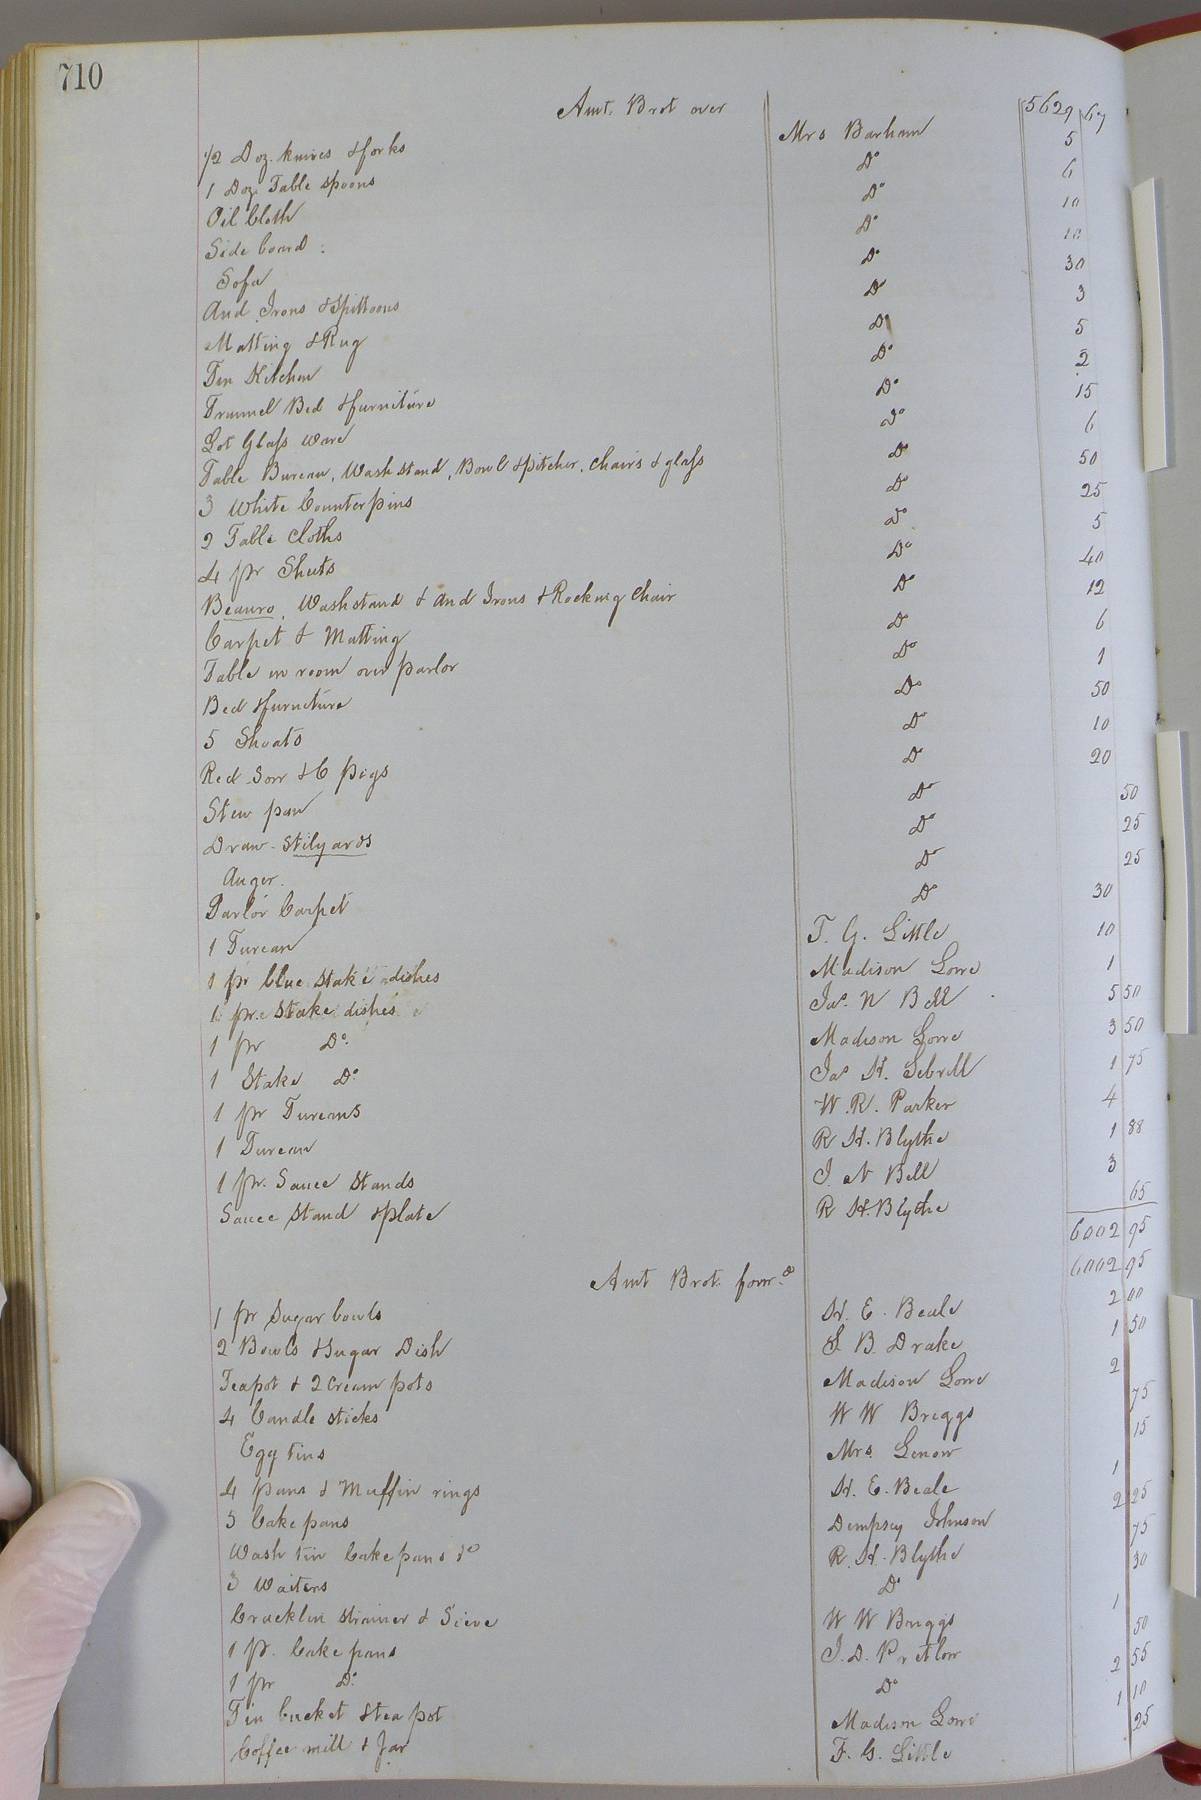 710
Amt. Brot over 5629 67
1/2 Doz. knives & forks Mrs Barham 5
1 Doz Table spoons Do 6
Oil Cloth Do 10
Side board Do 10
Sofa Do 30
And Irons & Spittoons Do 3
Matting & Rug Do 5
Tin Kitchen Do 2
Trunnel Bed & furniture Do 15
Lot Glass ware Do 6
Table Bureau, Wash stand, Bowl & pitcher, Chairs & glass Do 50
3 White Counterpins Do 25
2 Table Cloths Do 5
4 pr Sheets Do 40
Beauro, Washstand & And Irons & Rocking Chair Do 12
Carpet & Matting Do 6
Table in room over parlor Do 1
Bed & furniture Do 50
5 Shoats Do 10
Red Sow & 6 pigs Do 20
Stew pan Do 50
Draw-Stilyards Do 25
Auger Do 25
Parlor Carpet Do 30
1 Turean T. G. Little 10
1 pr blue Stake dishes Madison Lowe 1
1 pr. Stake dishes Jas. N Bell 5 50
1 pr Do Madison Lowe 3 50
1 Stake Do Jas H. Sebrell 1 75
1 pr Tureans W. R. Parker 4
1 Turean R H. Blythe 1 88
1 pr. Sauce Stands J. N Bell 3
Sauce Stand & plate R H. Blythe 65
6002 95
Amt Brot. forwd 6002 95
1 pr Sugar bowls H. E. Beale 2 00
2 Bowls & Sugar Dish S B. Drake 1 50
Teapot & 2 Cream pots Madison Lowe 2
4 Candle sticks W W Briggs 75
Egg tins Mrs. Lenow 15
4 pans & Muffin rings H. E. Beale 1
5 Cake pans Dempsey Johnson 2 25
Wash tin Cake pans &c R. H. Blythe 75
3 Waiters Do 30
Cracklin strainer & Sieve W W Briggs 1
1 pr. Cake pans J. D. Pretlow 50
1 pr Do Do 2 55
Tin bucket & tea pot Madison Lowe 1 10
Coffee mill & Jar T. G. Little 25